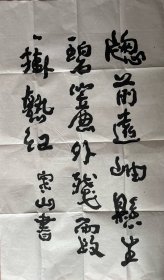 窻前遠岫懸生
碧簾外殘霞
掛熟紅 山書